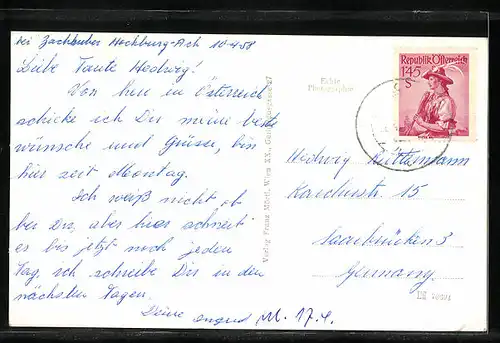 bei Zachbuber Hochburg-Ach 10-4-58
Liebe Tante Hedwig!
Von hier in Österreich
schicke ich Dir meine beste
wünsche und Grüsse, bin
hier seit Montag.
Ich weiß nicht ob
bei Dir, aber hier schneit
es bis jetzt noch jeden
Tag, ich schreibe Dir in den
nächsten Tagen.
Deine
M. 17.4.
Verlag Franz Mörtl, Wien XX.,
Echte
Photographie
Republik Österreich
1·45
S
Hedwig
Karcherstr. 15
Saarbrücken 3
Germany.